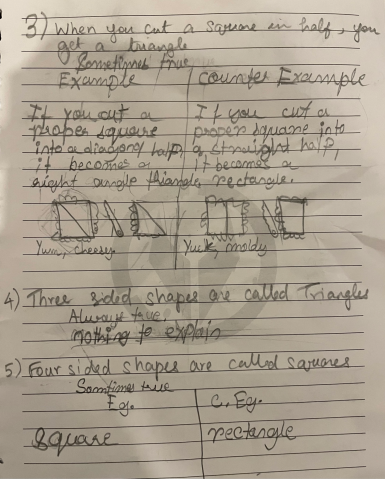 3) When you cut a square in half, you
get a triangle
Sometimes true
Example counter Example
If you cut a If you cut a
proper square proper square into
into a diagonal half, a straight half,
it becomes a it becomes a
right angle triangle. rectangle.
Yum, cheesy. Yuck, moldy
4) Three sided shapes are called Triangles
Always true.
Nothing to explain
5) Four sided shapes are called squares
Sometimes true
Eg. C. Eg.
Square rectangle